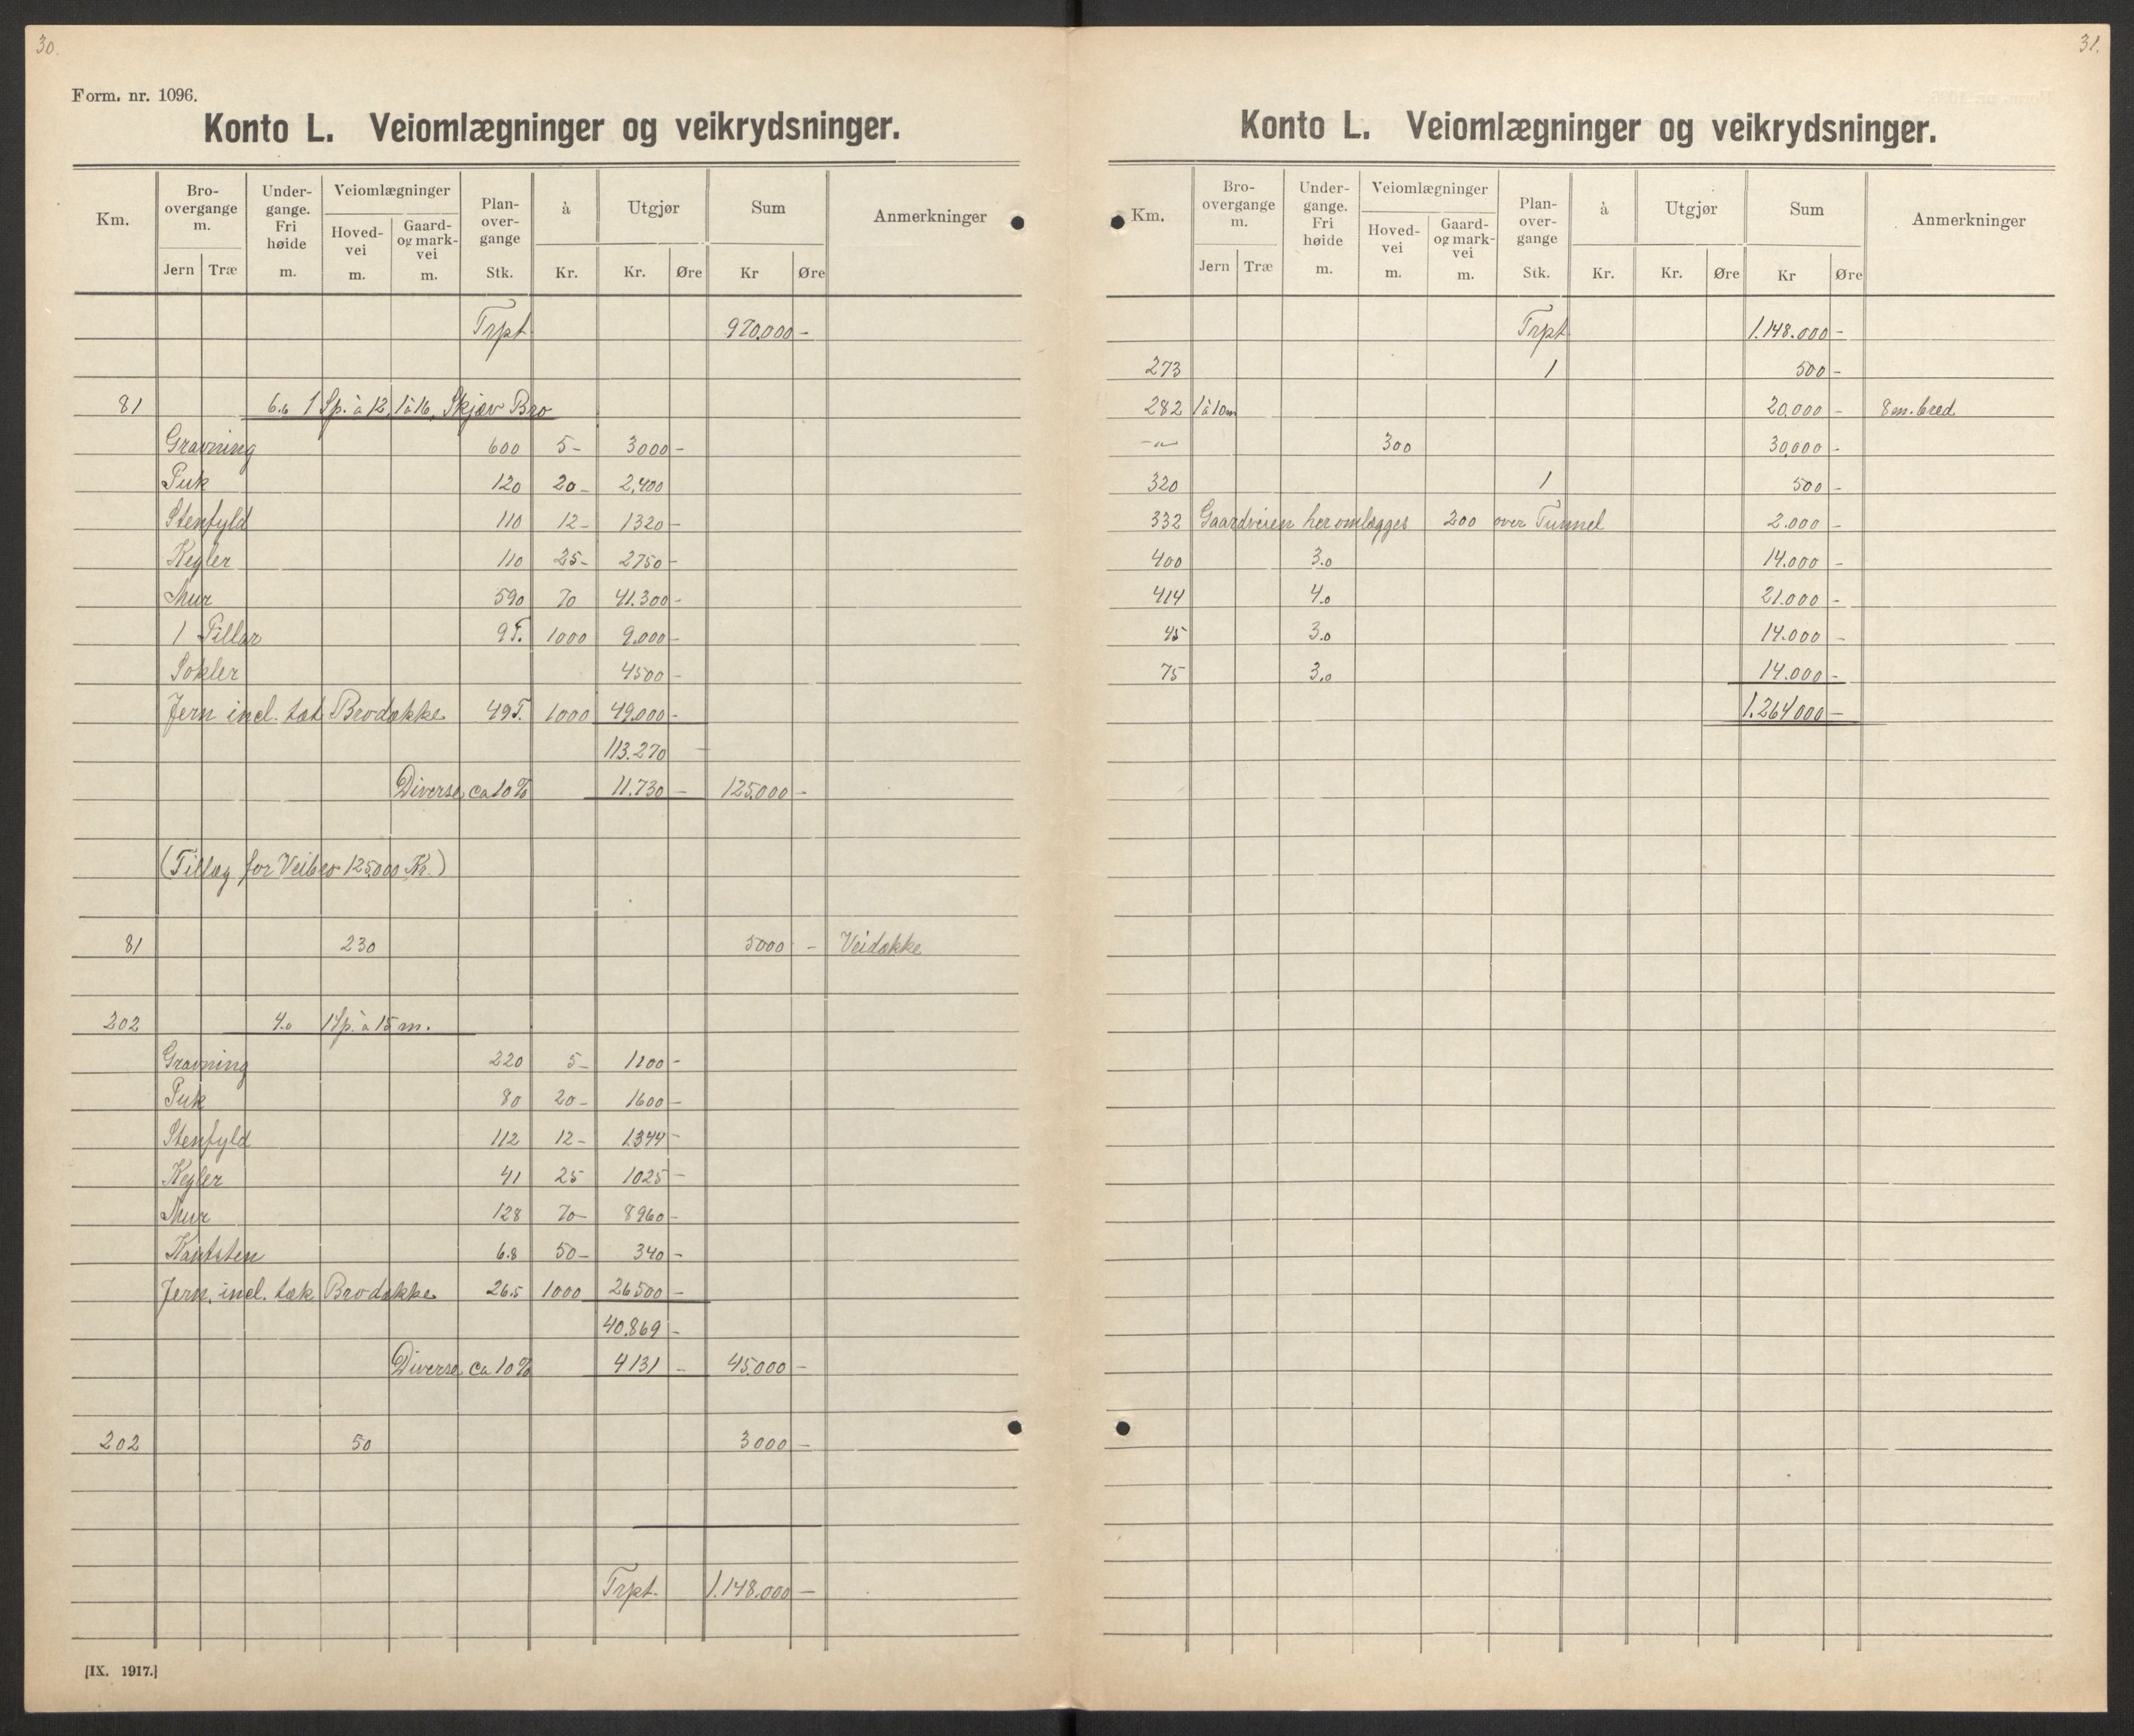 30.
Form. nr. 1096.
Konto L. Veiomlægninger og veikrydsninger.
Km. Bro-overgange m. Jern Træ Under-gange. Fri høide m. Veiomlægninger Hoved-vei m. Gaard- og mark-vei m. Plan-over-gange Stk. à Kr. Utgjør Kr. Øre Sum Kr Øre Anmerkninger
Trpt 970.000 -
81 6.0 1 Sp. à 12, 1 à 16, Skjæv Bro
Gravning 600 5 - 3000 -
Puk 120 20 - 2.400
Stenfyld 110 12 - 1320 -
Kegler 110 25 - 2750 -
Mur 590 70 41.300 -
1 Pillar 9 T. 1000 9.000 -
Sokler 4500 -
Jern incl. tæt Brodække 49 T. 1000 49.000 -
113.270 -
Diverse ca 10 % 11.730 - 125.000 -
(Tillæg for Veibro 125.000 Kr.)
81 230 5000 - Veidække
202 4.0 1 Sp. à 15 m.
Gravning 220 5 - 1100 -
Puk 80 20 - 1600 -
Stenfyld 112 12 - 1.344 -
Kegler 41 25 1025 -
Mur 128 70 - 8960 -
Kantsten 6.8 50 - 340 -
Jern, incl. tæk Brodække 26.5 1000 26500 -
40.869 -
Diverse ca 10 % 4131 - 45.000 -
202 50 3000 -
Trpt. 1.148.000 -
[IX. 1917.]
31.
Konto L. Veiomlægninger og veikrydsninger.
Km. Bro-overgange m. Jern Træ Under-gange. Fri høide m. Veiomlægninger Hoved-vei m. Gaard- og mark-vei m. Plan-over-gange Stk. à Kr. Utgjør Kr. Øre Sum Kr Øre Anmerkninger
Trpt 1.148.000 -
273 1 500 -
282 1 à 10 m 20.000 - 8 m. bred
-"- 300 30.000 -
320 1 500 -
332 Gaardveien her omlægges 200 over Tunnel 2.000 -
400 3.0 14.000 -
414 4.0 21.000 -
45 3.0 14.000 -
75 3.0 14.000 -
1.264000 -